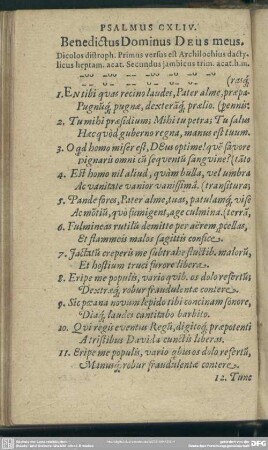 PSALMUS CXLIV.
Benedictus Dominus DEUS meus.
Dicolos distroph. Primus versus est Archilochius dacty-
licus heptam. acat. Secundus jambicus trim. acat. h.m.
1. EN tibi quas recino laudes, Pater alme, præpa-
Pugnæq́; pugnæ, dexteráq́; prælio.
2. Tu mihi præsidium; Mihi tu petra; Tu salus
Hæc quòd guberno regna, manus est tuum.
3. O qd homo miser est, DEus optime! qu
Dignaris omni cũ sequenti sanguine? (tãto
4. Est homo nil aliud, quàm bulla, vel umbra
Ac vanitate vanior vanissima. (transitura,
5. Pande fores, Pater alme, tuas, patulasq́; vise
Ac mõtiũ, quò fumigent, age culmina. (terrã,
6. Fulmineas rutilũ demitte per aërem, pcellas,
Et flammeis malos sagittis confice.
7. Jactatũ creperũ me subtrahe fluctib. malorũ,
Et hostium truci furore libera.
8. Eripe me populis, vario quib. os dolo refertũ,
Dextræq́; robur fraudulentæ contere.
9. Sic pæana novum lepido tibi concinam sonore,
Diaq́; laudes cantitabo barbito.
10. Qui regis eventus Regũ, digitoq́; præpotenti
A tristibus Davida cunctis liberas.
11. Eripe me populis, vario quibus os dolo refertũ,
Manusq́; robur fraudulentæ contere.
12. Tunc